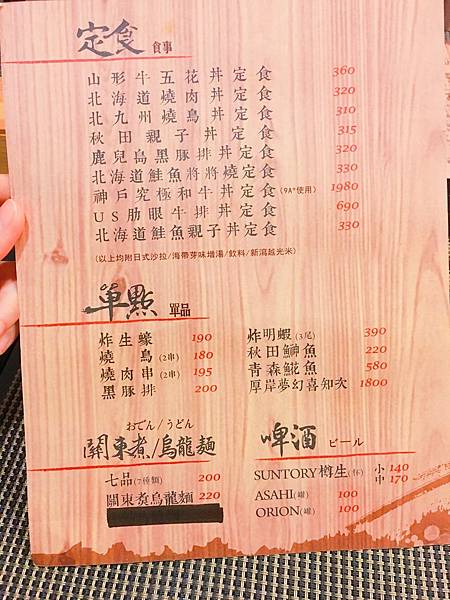 定食 食事
山形牛五花丼定食 360
北海道燒肉丼定食 320
北九州燒鳥丼定食 310
秋田親子丼定食 315
鹿兒島黑豚排丼定食 320
北海道鮭魚將將燒定食 330
神戶究極和牛丼定食(9A⁺使用) 1980
US肋眼牛排丼定食 690
北海道鮭魚親子丼定食 330
(以上均附日式沙拉/海帶芽味增湯/飲料/新瀉越光米)
單點 單品
炸生蠔 190
燒鳥(2串) 180
燒肉串(2串) 195
黑豚排 200
炸明蝦(3尾) 390
秋田鰰魚 220
青森𩸽魚 580
厚岸夢幻喜知次 1800
おでん/うどん
關東煮/烏龍麵
七品(7種類) 200
關東煮烏龍麵 220
啤酒 ビール
SUNTORY樽生(杯) 小140
中170
ASAHI(罐) 100
ORION(罐) 100